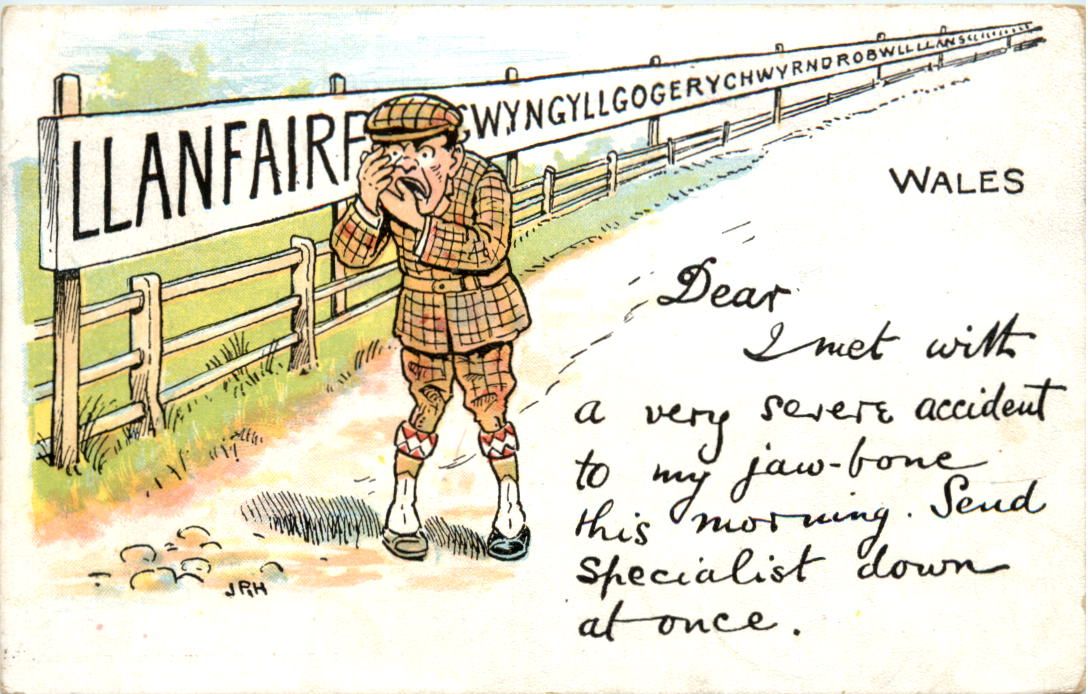 LLANFAIRP GWYNGYLLGOGERYCHWYRNDROBWLLLLANS
WALES
Dear
I met with
a very severe accident
to my jaw-bone
this morning. Send
specialist down
at once.
JRH